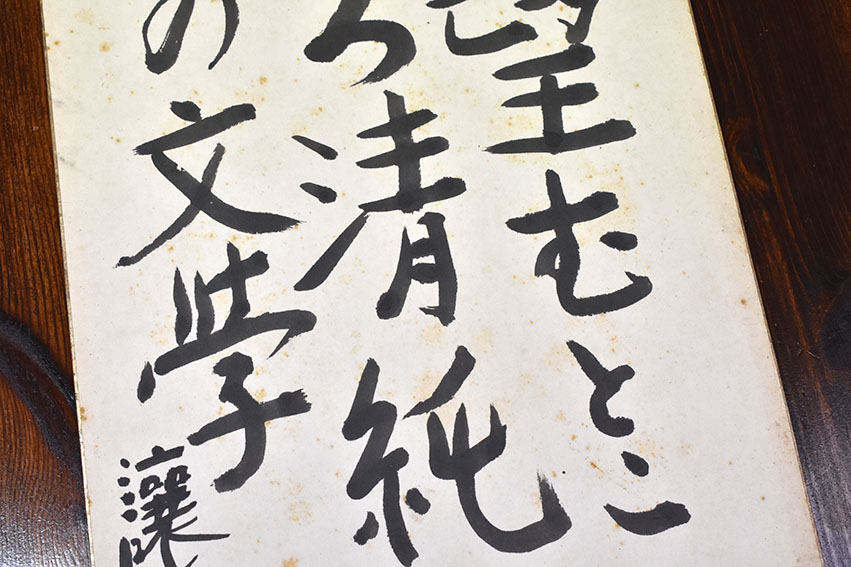 望むとこ
ろ清純
の文学